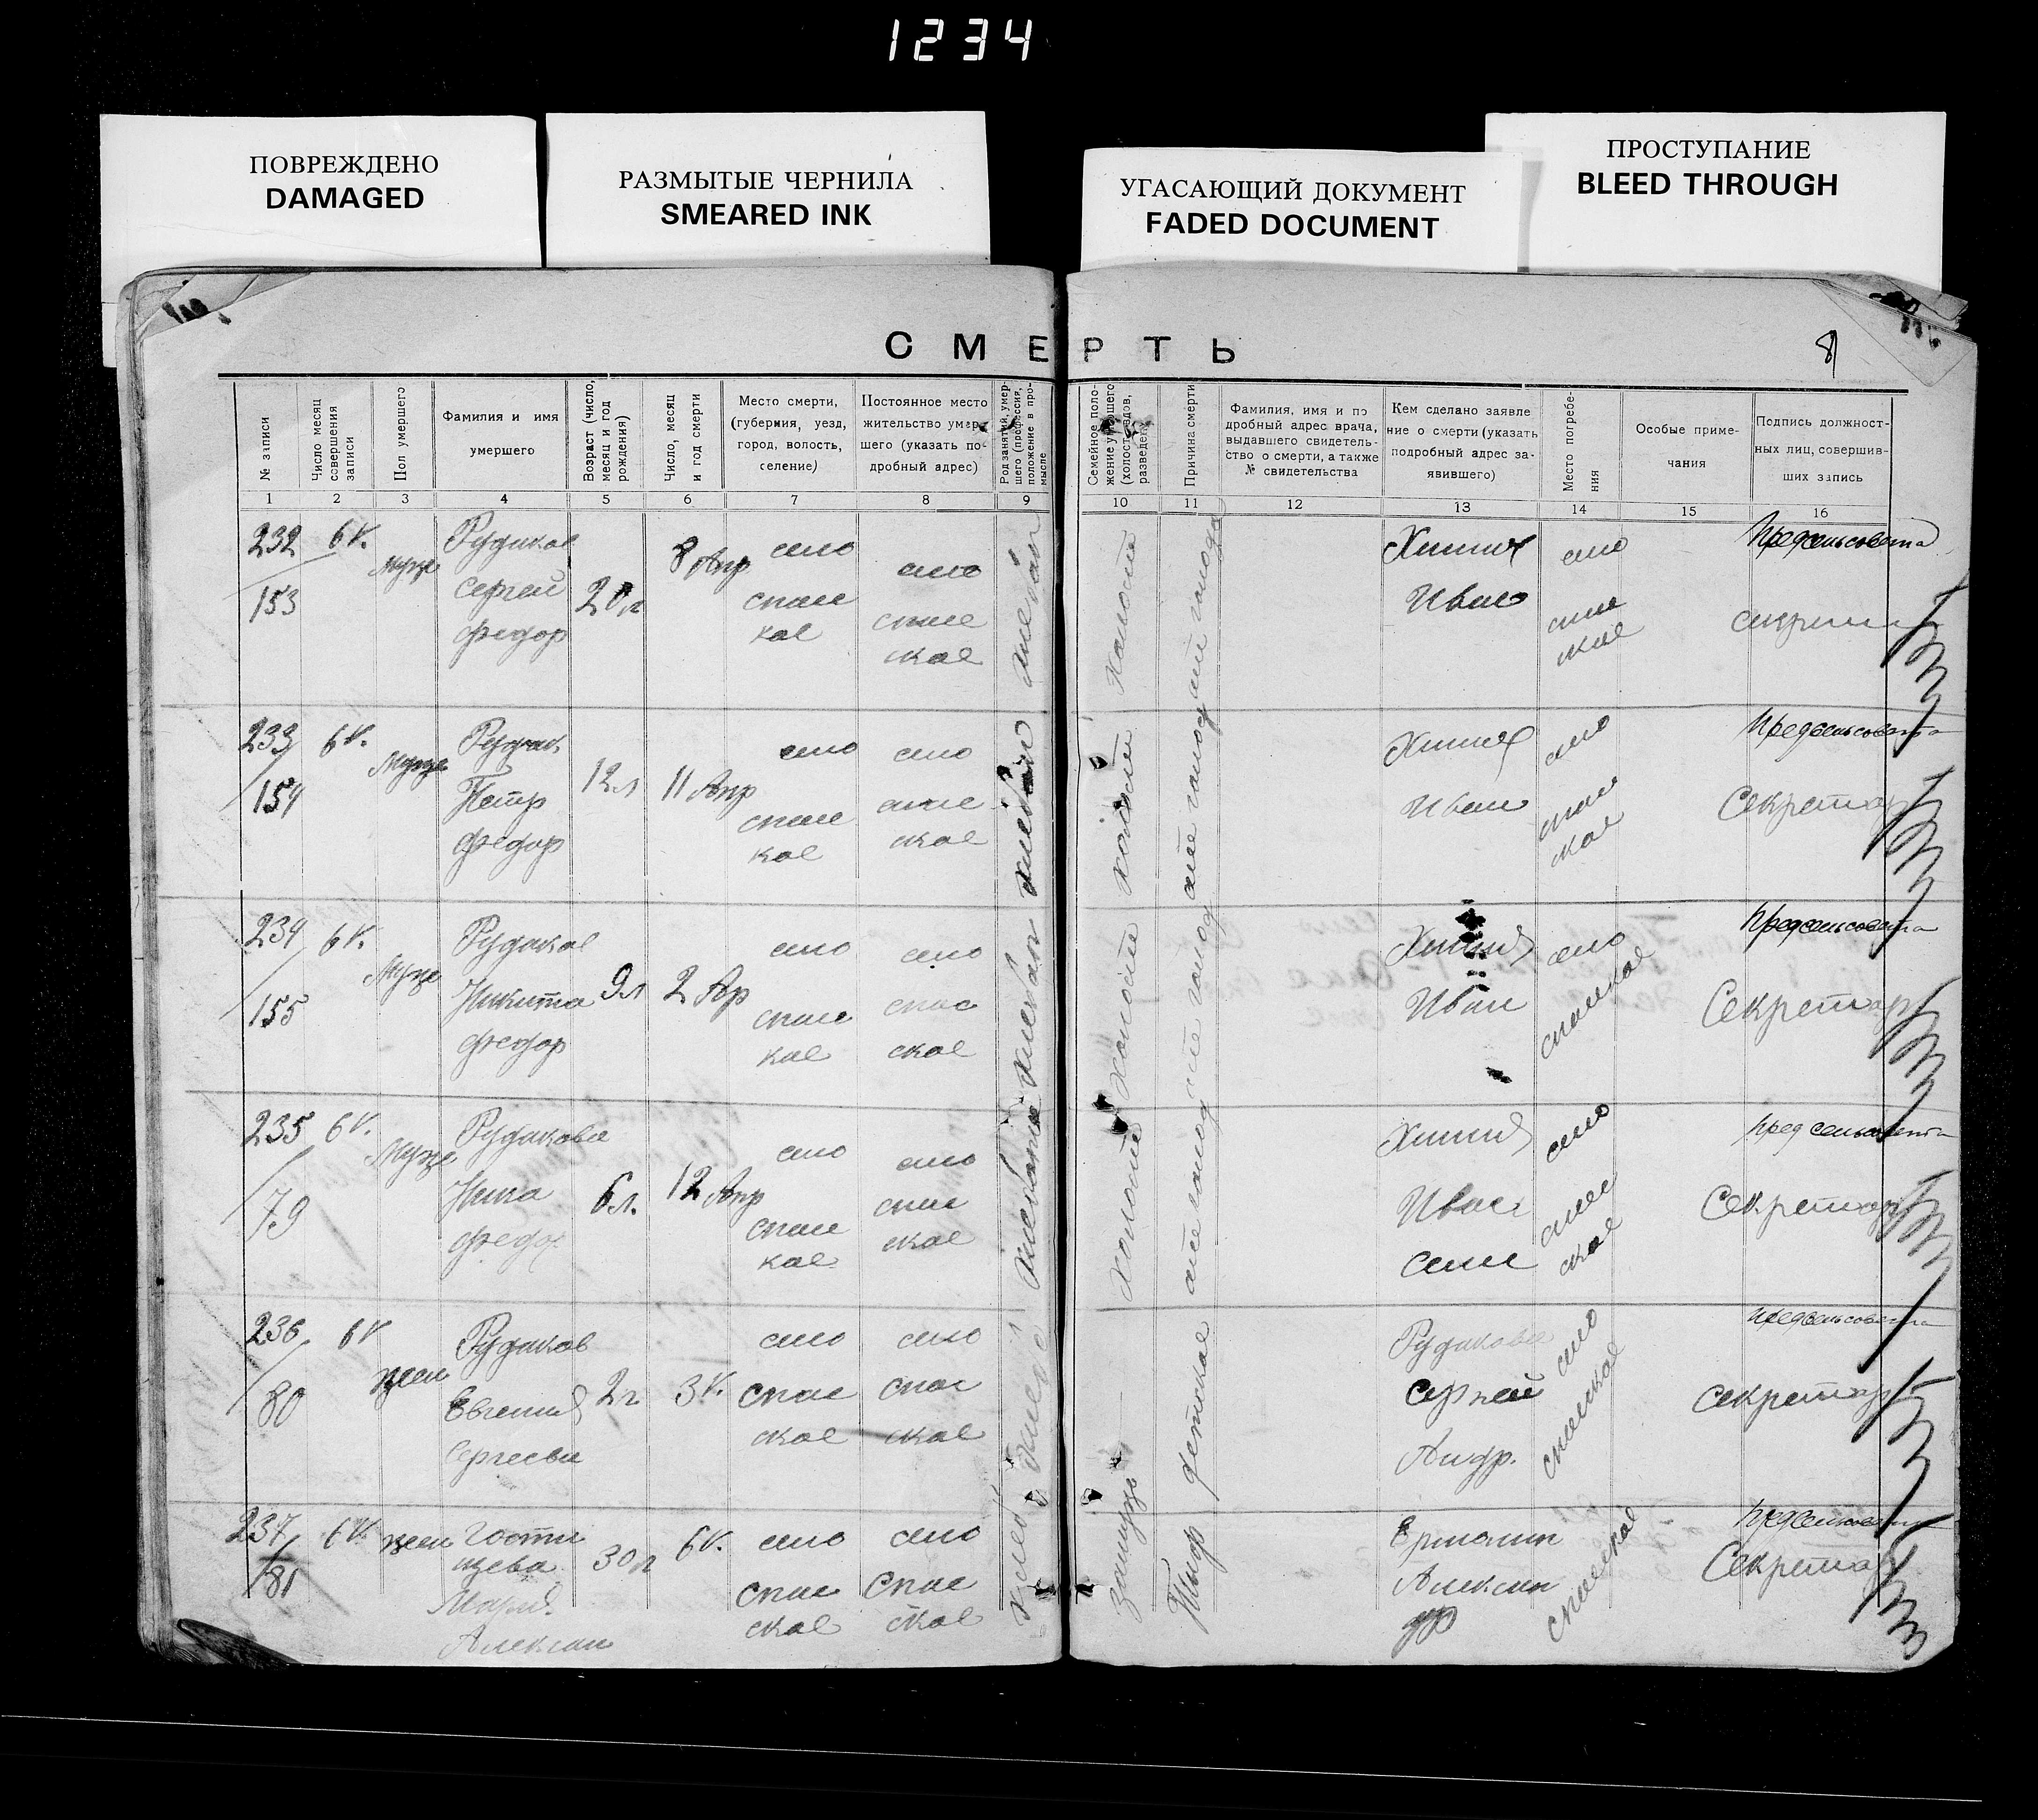 1234
ПОВРЕЖДЕНО
DAMAGED
РАЗМЫТЫЕ ЧЕРНИЛА
SMEARED INK
УГАСАЮЩИЙ ДОКУМЕНТ
FADED DOCUMENT
ПРОСТУПАНИЕ
BLEED THROUGH
СМЕРТЬ
8
№ записи
Число месяц
совершения
записи
Пол умершего
Фамилия и имя
умершего
Возраст (число,
месяц и год
рождения)
Число, месяц
и год смерти
Место смерти,
(губерния, уезд,
город, волость,
селение)
Постоянное место
жительство умер-
шего (указать по-
дробный адрес)
Род занятий, умер-
шего (профессия,
положение в про-
мысле
Семейное поло-
жение умершего
(холост, вдов,
разведен)
Причина смерти
Фамилия, имя и по
дробный адрес врача,
выдавшего свидетель-
ство о смерти, а также
№ свидетельства
Кем сделано заявле
ние о смерти (указать
подробный адрес за-
явившего)
Место погребе-
ния
Особые приме-
чания
Подпись должност-
ных лиц, совершив-
ших запись
1 2 3 4 5 6 7 8 9 10 11 12 13 14 15 16
232
153
6 V.
муже
Рудаков
Сергей
Федор
20 л
8 Апр
село
спас
кое
село
спас
ское
холост
Иван
село
Предсельсовета
233
154
6 V.
муже
Петр
Федор
12 л
11 Апр
село
спас
кое
село
спас
ское
холост
Иван
село
Предсельсовета
Секретар
234
155
6 V.
муже
Рудаков
Никита
Федор
9 л
2 Ар
село
спас
кое
село
спас
ское
холост
Иван
село
спасское
Предсельсовета
Секретар
235
79
6 V.
муже
Рудакова
Нина
Федор
6 л.
12 Апр
село
спас
кое
село
спас
ское
холост
Иван
село
спас
ское
Предсельсовета
Секретар
236
80
6 V
жен
Рудаков
Евгения
Сергеева
2 г
3 V.
село
Спас
ское
село
Спас
ское
детская
Рудакова
Сергей
Андр.
село
спасское
Предсельсовета
Секретар
237
81
6 V.
жен
Мария
Алексан
30 л
6 V.
село
Спас
ское
село
Спас
ское
замуж
Тиф
Ермолин
Алексан
др
спасское
Предсельсовета
Секретар